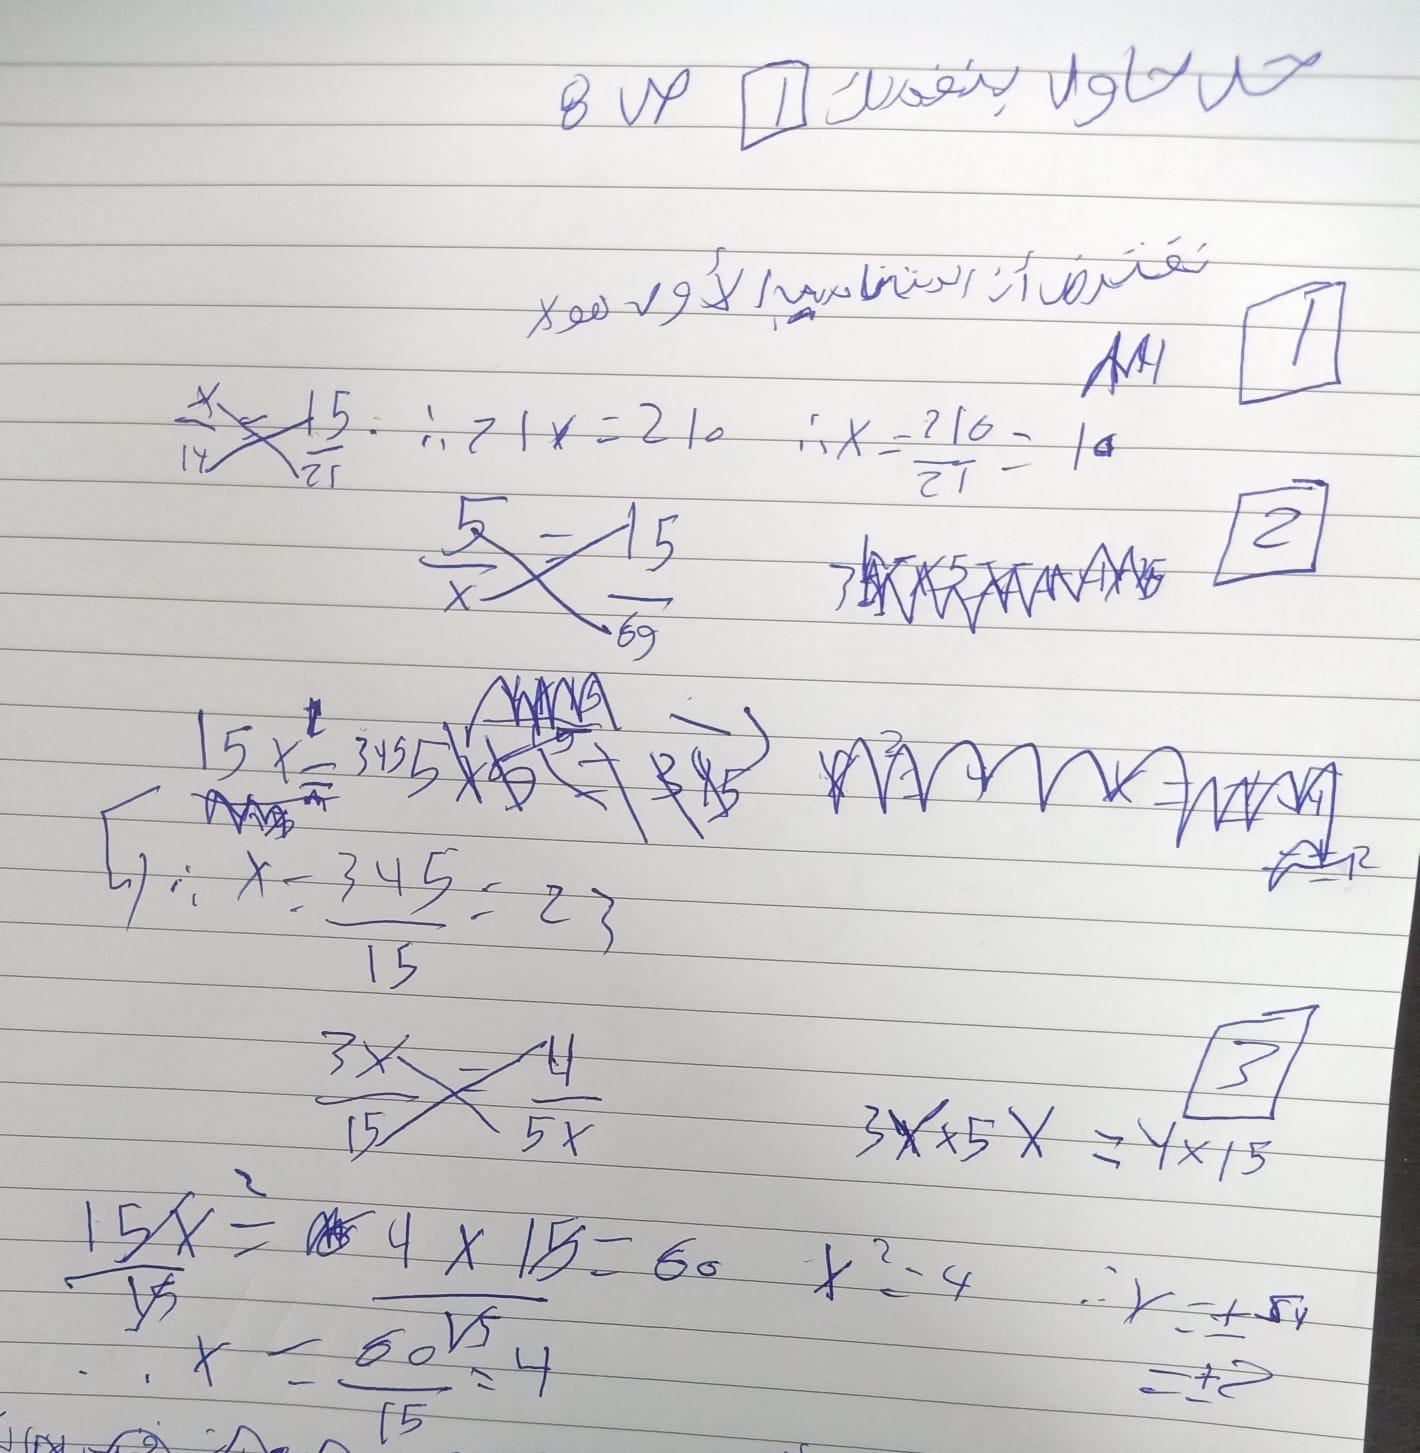 حل حاول بنفسك 1 ص 8
نفترض أن المتناسب الأول هو x
1
x/14 = 15/21 ∴ 21x = 210 ∴ x = 210/21 = 10
2
5/x = 15/69
15x = 345
∴ x = 345/15 = 23
3
3x/15 = 4/5x
3x × 5x = 4 × 15
15x²/15 = 4 × 15/15 = 60 x² = 4 ∴ x = ±√4
= ±2
∴ x = 60/15 = 4